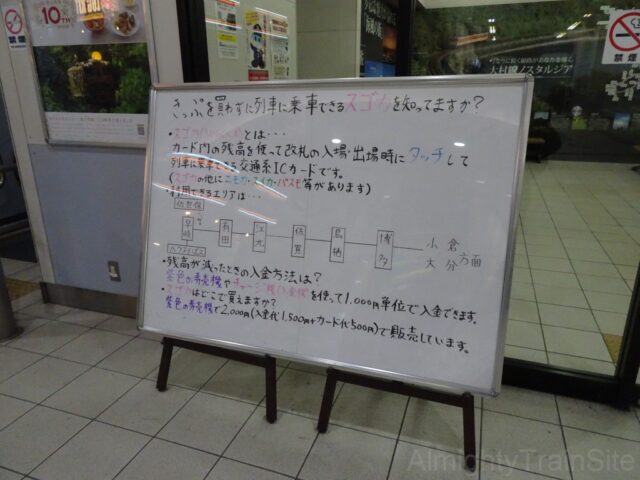 禁煙
10TH
禁煙
大村線ノスタルジア
きっぷを買わずに列車に乗車できるスゴカを知ってますか?
とは・・・
カード内の残高を使って改札の入場・出場時にタッチして
列車に乗車できる交通系ICカードです。
(スゴカの他にニモカ・スイカ・パスモ等があります)
・利用できるエリアは・・・
佐世保
早岐
有田
江北
佐賀
鳥栖
博多
小倉
大分
方面
ハウステンボス
・残高が減ったときの入金方法は?
紫色の券売機やチャージ機(入金機)を使って1,000円単位で入金できます。
・スゴカはどこで買えますか?
紫色の券売機で2,000円(入金代1,500円+カード代500円)で販売しています。
AlmightyTrainSite